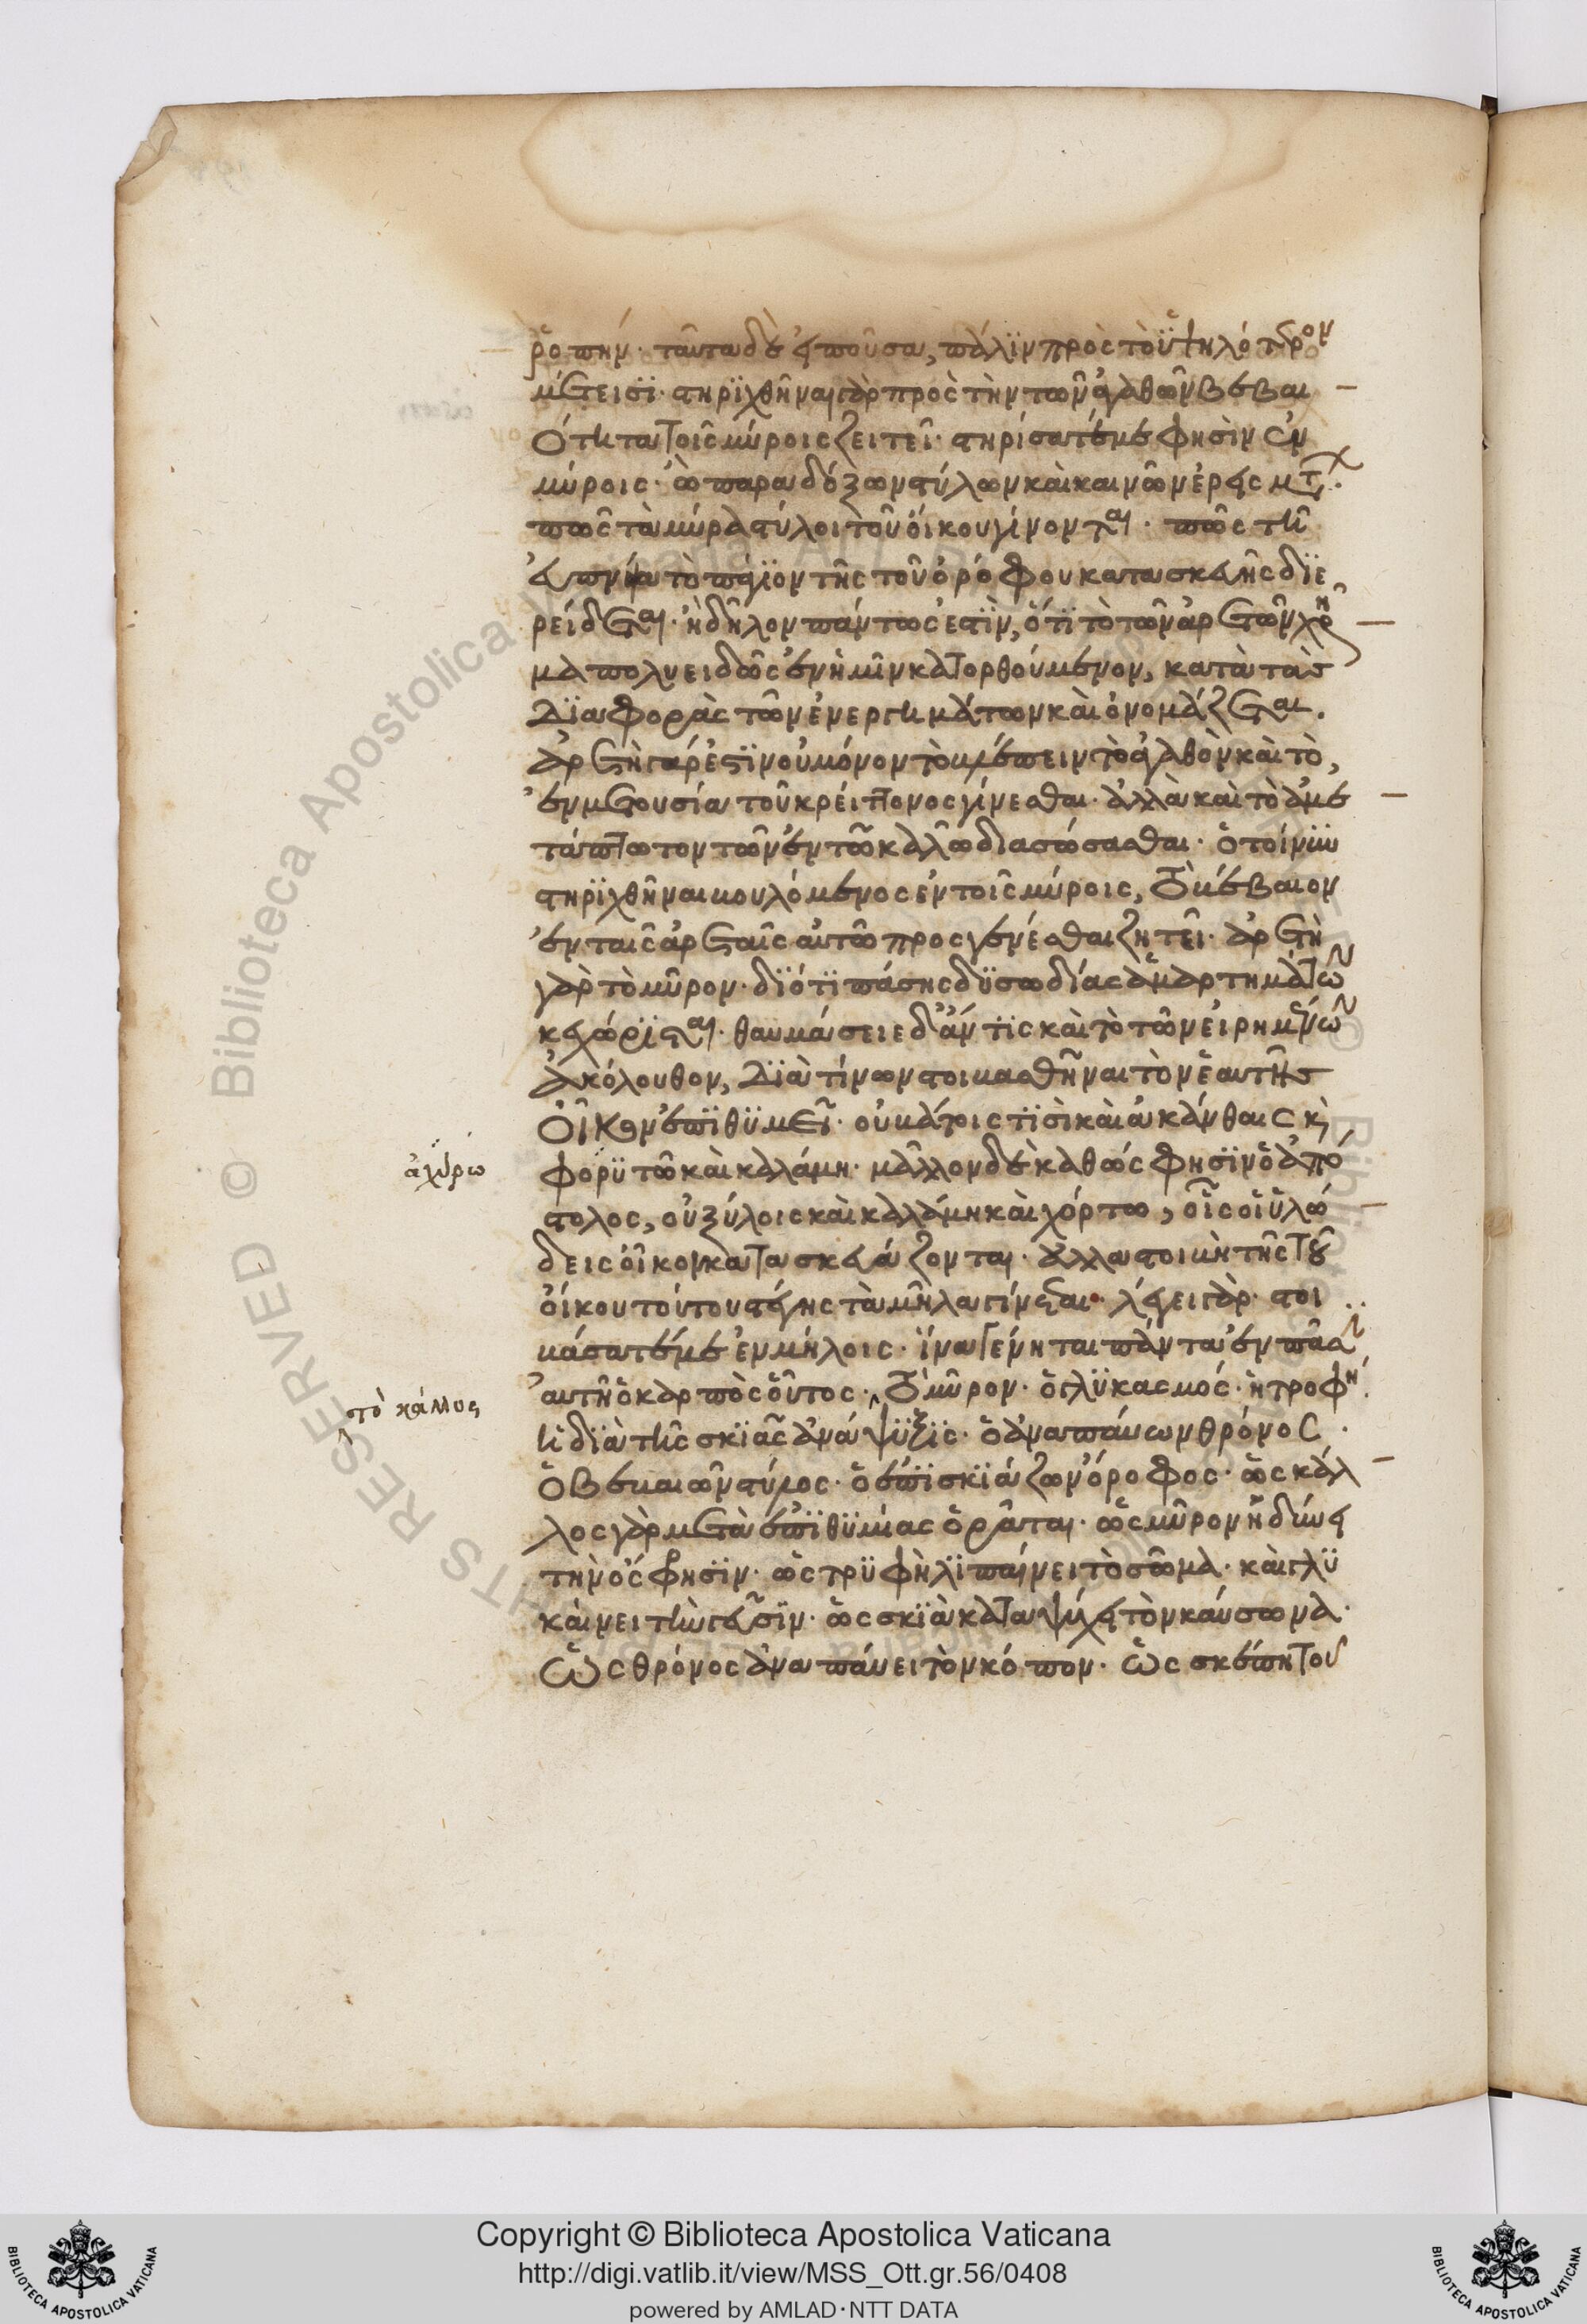 ῥοπήν· ταῦτα δὲ εἰποῦσα, πάλιν πρὸς τὸ ὑψηλότερον
μέτεισι· στηριχθῆναι γὰρ πρὸς τὴν τῶν ἀγαθῶν βεβαι
ότητα τοῖς μύροις ζειτεῖ· στηρίσατέ με φησὶν ἐν
μύροις· ὢ παραδόξων στύλων καὶ καινῶν ἐρεισμάτων·
πῶς τὰ μύρα στύλοι τοῦ οἴκου γίνονται· πῶς τῆ
εὐπνοία τὸ πάγιον τῆς τοῦ ὀρόφου κατασκευῆς διε
ρείδεται· ἢ δῆλον πάντως ἐστὶν, ὅτι τὸ τῶν ἀρετῶν χρῆ
μα πολυειδῶς ἐν ἡμῖν κατορθούμενον, κατὰ τὰς
διαφορὰς τῶν ἐνεργημάτων καὶ ὀνομάζεται.
ἀρετὴ γάρ ἐστιν οὐ μόνον τὸ βλέπειν τὸ ἀγαθὸν καὶ τὸ,
ἐν μετουσία τοῦ κρείττονος γίνεσθαι· ἀλλὰ καὶ τὸ ἀμε
τάπτωτον τῶν ἐν τῶ καλῶ διασώσασθαι· ὁ τοίνυν
στηριχθῆναι βουλόμενος ἐν τοῖς μύροις, τὸ βέβαιον
ἐν ταῖς ἀρεταῖς αὐτῶ προσγενέσθαι ζητεῖ· ἀρετὴ
γὰρ τὸ μῦρον· διότι πάσης δυσωδίας ἁμαρτημάτων
κεχώρισται· θαυμάσειε δ' ἄν τις καὶ τὸ τῶν εἰρημένων
ἀκόλουθον, διὰ τίνων στοιβασθῆναι τὸν ἑαυτῆς
οἶκον ἐπιθυμεῖ· οὐ βάτοις τισὶ καὶ ἀκάνθαις κὶ
φορυτῶ καὶ καλάμη· μᾶλλον δὲ καθώς φησιν ὁ ἀπό
στολος, οὐ ξύλοις καὶ καλάμη καὶ χόρτω, οἷς οἱ ὑλώ
δεις οἶκον κατασκευάζονται· ἀλλὰ στοιβὴ τῆς τοῦ
οἴκου τούτου στέγης τὰ μῆλα γίνεται· λέγει γάρ· στοι
βάσατέ με ἐν μήλοις· ἵνα γένηται πάντα ἐν πᾶσι
αὐτῆ ὁ καρπὸς οὗτος· τὸ μῦρον· ὁ γλυκασμός· ἡ τροφή·
ἡ διὰ τῆς σκιᾶς ἀνάψυξις· ὁ ἀναπαύων θρόνος·
ὁ βεβαιῶν στύλος· ὁ ἐπισκιάζων ὄροφος· ὡς κάλ
λος γὰρ μετὰ ἐπιθυμίας ὁρᾶται· ὡς μῦρον ἡδύνει
τὴν ὄσφησιν· ὡς τρυφὴ λιπαίνει τὸ σῶμα· καὶ γλυ
καίνει τὴν γεῦσιν· ὡς σκιὰ καταψύχει τὸν καύσωνα·
ὡς θρόνος ἀναπαύει τὸν κόπον· ὡς σκέπη τοῦ
ἀχύρω
τὸ κάλλος
Copyright © Biblioteca Apostolica Vaticana
http://digi.vatlib.it/view/MSS_Ott.gr.56/0408
powered by AMLAD·NTT DATA